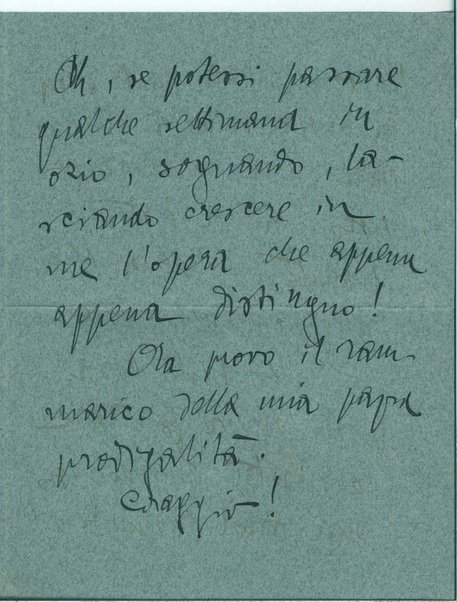 Oh, se potessi passare
qualche settimana in
ozio, sognando, la-
sciando crescere in
me l'opera che appena
appena distinguo!
Ora provo il ram-
marico della mia pazza
prodigalità.
Coraggio!